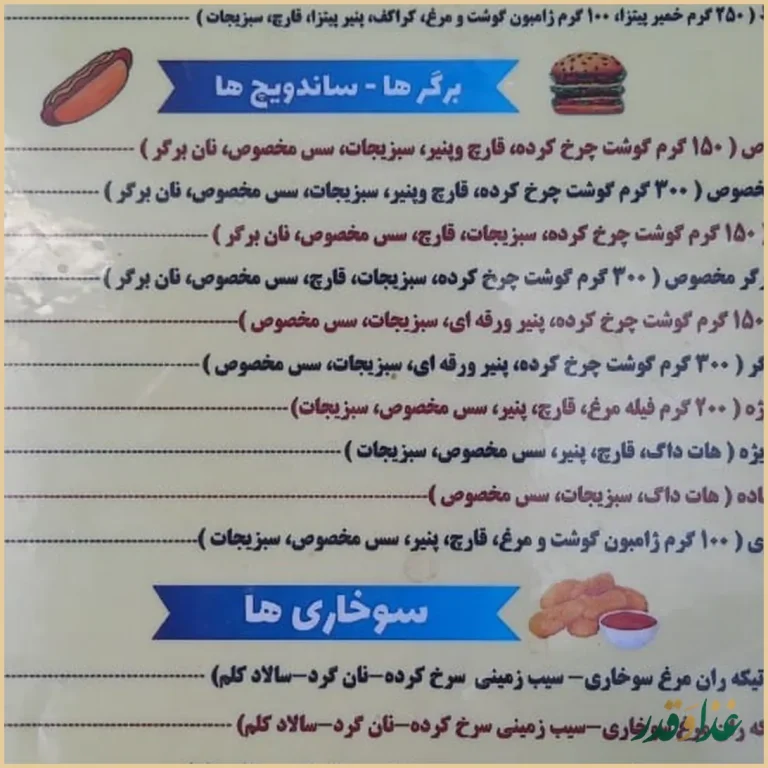 ( ۲۵۰ گرم خمیر پیتزا، ۱۰۰ گرم ژامبون گوشت و مرغ، کراکف، پنیر پیتزا، قارچ، سبزیجات )
برگر ها - ساندویچ ها
( ۱۵۰ گرم گوشت چرخ کرده، قارچ وپنیر، سبزیجات، سس مخصوص، نان برگر )
( ۳۰۰ گرم گوشت چرخ کرده، قارچ وپنیر، سبزیجات، سس مخصوص، نان برگر )
( ۱۵۰ گرم گوشت چرخ کرده، سبزیجات، قارچ، سس مخصوص، نان برگر )
مخصوص ( ۳۰۰ گرم گوشت چرخ کرده، سبزیجات، قارچ، سس مخصوص، نان برگر )
۱۵۰ گرم گوشت چرخ کرده، پنیر ورقه ای، سبزیجات، سس مخصوص )
( ۳۰۰ گرم گوشت چرخ کرده، پنیر ورقه ای، سبزیجات، سس مخصوص )
( ۲۰۰ گرم فیله مرغ، قارچ، پنیر، سس مخصوص، سبزیجات)
( هات داگ، قارچ، پنیر، سس مخصوص، سبزیجات )
( هات داگ، سبزیجات، سس مخصوص )
( ۱۰۰ گرم ژامبون گوشت و مرغ، قارچ، پنیر، سس مخصوص، سبزیجات )
سوخاری ها
تیکه ران مرغ سوخاری– سیب زمینی سرخ کرده–نان گرد–سالاد کلم)
سوخاری–سیب زمینی سرخ کرده–نان گرد–سالاد کلم)
غذا و قدر